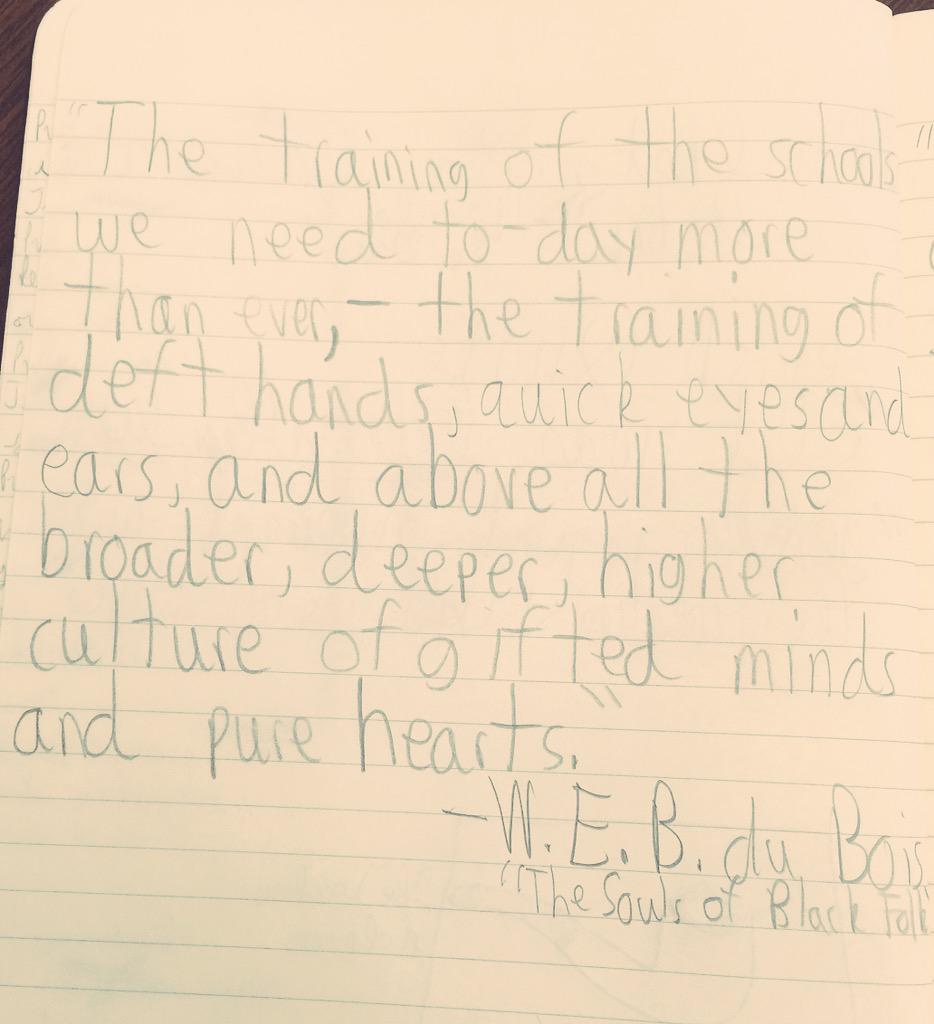 "The training of the schools
we need to-day more
than ever,- the training of
deft hands, quick eyes and
ears, and above all the
broader, deeper, higher
culture of gifted minds
and pure hearts."
-W.E.B. du Bois
"The Souls of Black Folk